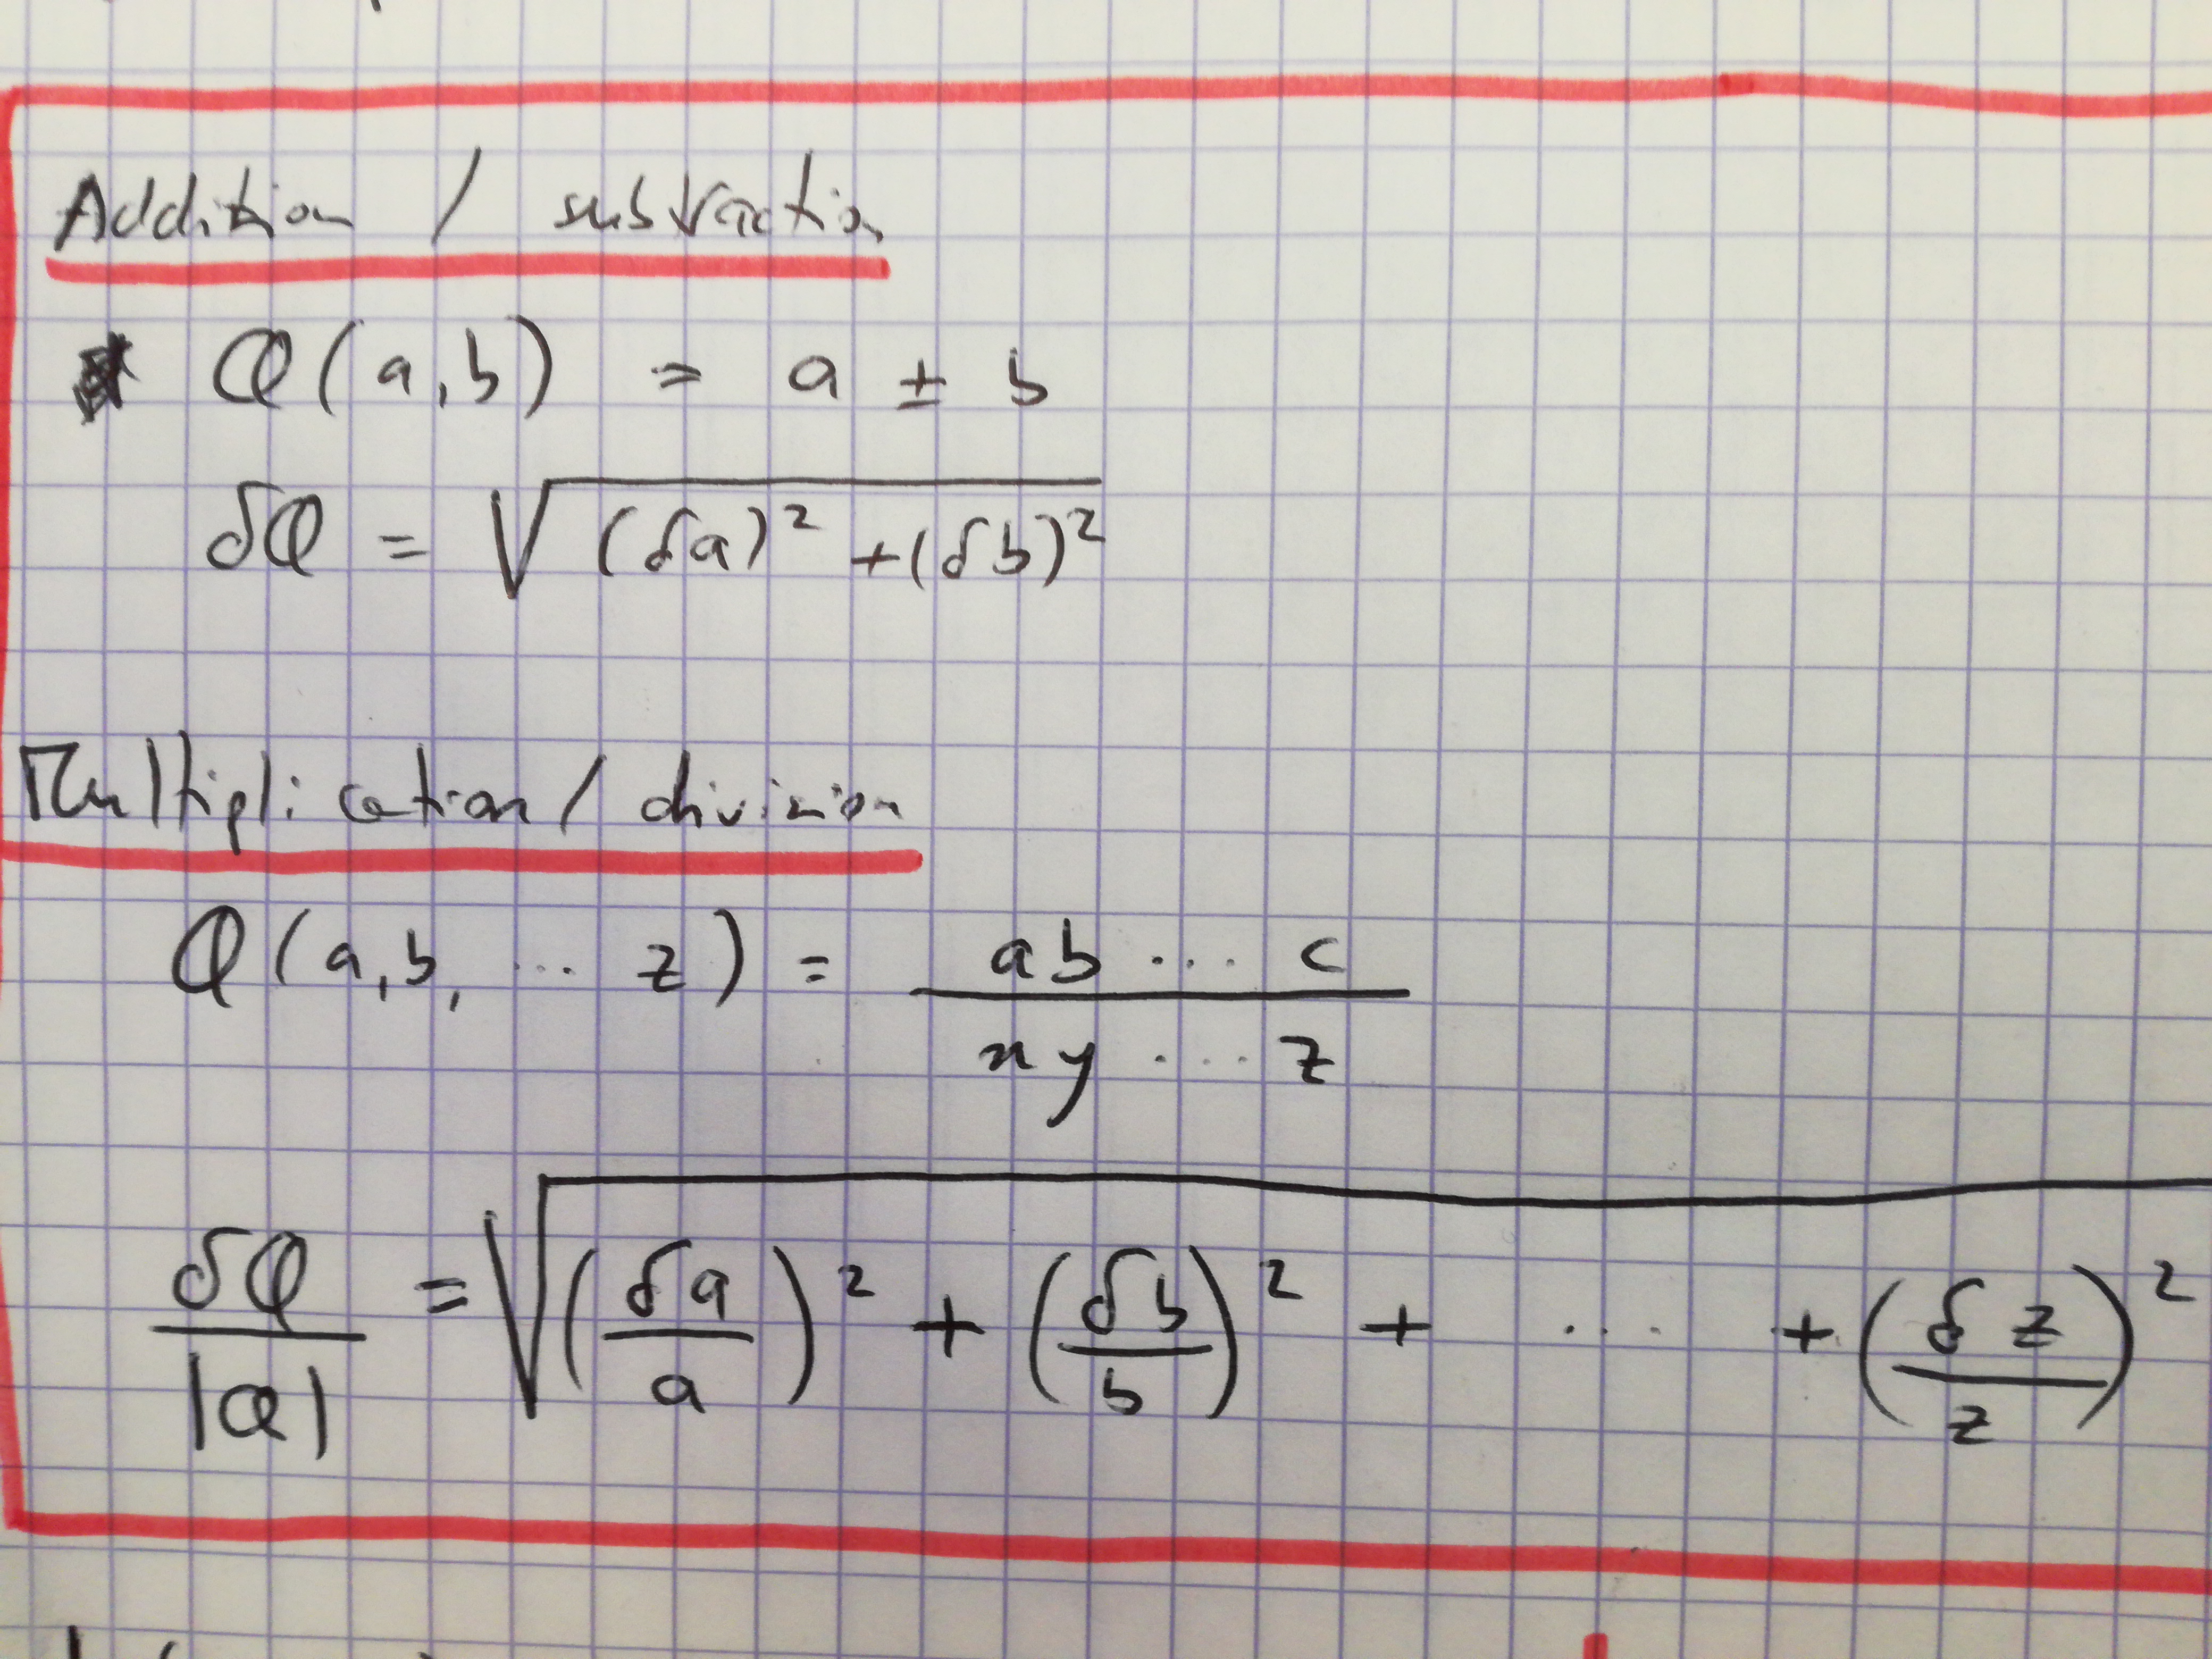 Addition / subtraction
Q(a,b) = a ± b
δQ = √((δa)² + (δb)²)
Multiplication / division
Q(a,b, ... z) = (ab ... c)/(xy ... z)
δQ/|Q| = √((δa/a)² + (δb/b)² + ... + (δz/z)²)